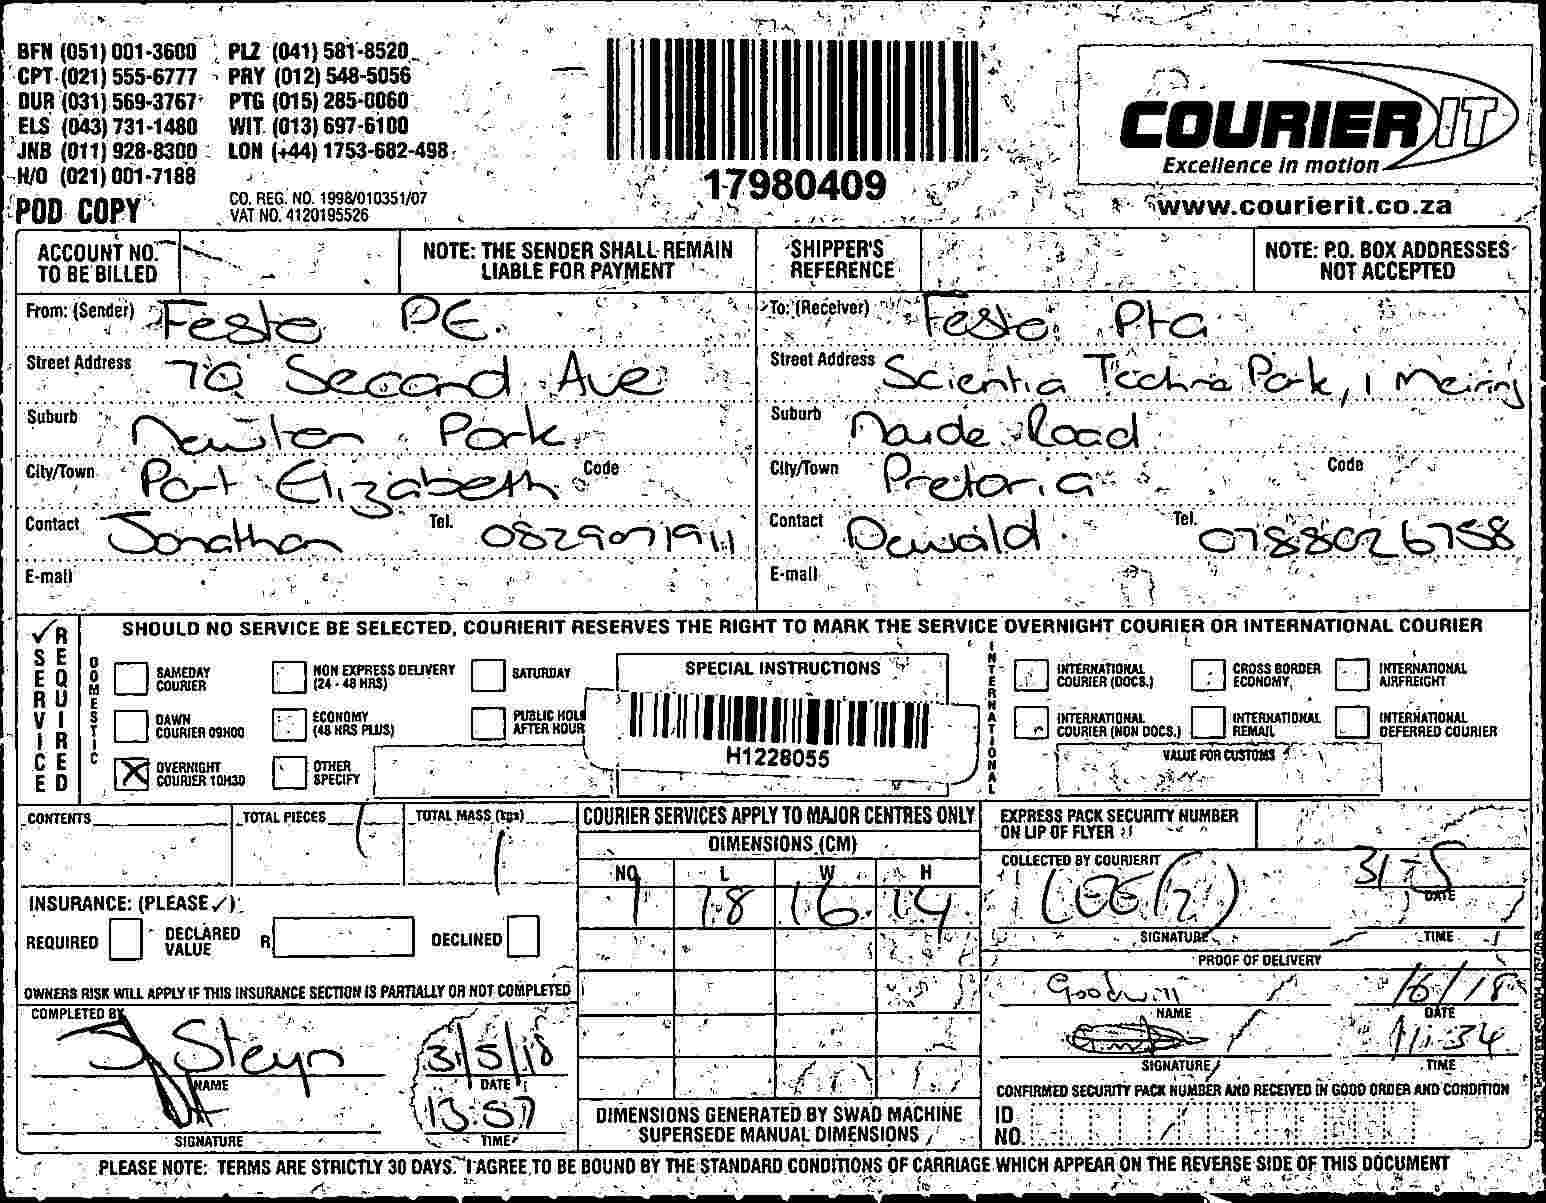 BFN (051) 001-3600 PLZ (041) 581-8520
CPT (021) 555-6777 PRY (012) 548-5056
DUR (031) 569-3767 PTG (015) 285-0060
ELS (043) 731-1480 WIT (013) 697-6100
JNB (011) 928-8300 LON (+44) 1753-682-498
H/O (021) 001-7188
POD COPY
CO. REG. NO. 1998/010351/07
VAT NO. 4120195526
17980409
COURIER IT
Excellence in motion
www.courierit.co.za
ACCOUNT NO. TO BE BILLED
NOTE: THE SENDER SHALL REMAIN LIABLE FOR PAYMENT
SHIPPER'S REFERENCE
NOTE: P.O. BOX ADDRESSES NOT ACCEPTED
From: (Sender) Festo PE.
Street Address 70 Second Ave
Suburb Newton Park
City/Town Port Elizabeth Code
Contact Jonathan Tel. 0829071911
E-mail
To: (Receiver) Festo Pta
Street Address Scientia Techno Park, 1 Meiring
Suburb Naude Road
City/Town Pretoria Code
Contact Dewald Tel. 0788026758
E-mail
SERVICE REQUIRED
SHOULD NO SERVICE BE SELECTED, COURIERIT RESERVES THE RIGHT TO MARK THE SERVICE OVERNIGHT COURIER OR INTERNATIONAL COURIER
DOMESTIC
SAMEDAY COURIER
NON EXPRESS DELIVERY (24 - 48 HRS)
SATURDAY
DAWN COURIER 09H00
ECONOMY (48 HRS PLUS)
PUBLIC HOL
AFTER HOUR
OVERNIGHT COURIER 10H30
OTHER SPECIFY
SPECIAL INSTRUCTIONS
H1228055
INTERNATIONAL
INTERNATIONAL COURIER (DOCS.)
CROSS BORDER ECONOMY
INTERNATIONAL AIRFREIGHT
INTERNATIONAL COURIER (NON DOCS.)
INTERNATIONAL REMAIL
INTERNATIONAL DEFERRED COURIER
VALUE FOR CUSTOMS
CONTENTS
TOTAL PIECES 1
TOTAL MASS (kgs) 1
INSURANCE: (PLEASE ✓)
REQUIRED
DECLARED VALUE R
DECLINED
OWNERS RISK WILL APPLY IF THIS INSURANCE SECTION IS PARTIALLY OR NOT COMPLETED
COMPLETED BY
J Steyn
NAME
31/5/18
DATE
13:57
SIGNATURE
TIME
COURIER SERVICES APPLY TO MAJOR CENTRES ONLY
DIMENSIONS (CM)
NO. L W H
1 18 16 14
DIMENSIONS GENERATED BY SWAD MACHINE SUPERSEDE MANUAL DIMENSIONS
EXPRESS PACK SECURITY NUMBER ON LIP OF FLYER
COLLECTED BY COURIERIT
31-5
DATE
SIGNATURE
TIME
PROOF OF DELIVERY
Goodwill
NAME
1/6/18
DATE
11:34
SIGNATURE
TIME
CONFIRMED SECURITY PACK NUMBER AND RECEIVED IN GOOD ORDER AND CONDITION
ID NO.
PLEASE NOTE: TERMS ARE STRICTLY 30 DAYS. I AGREE TO BE BOUND BY THE STANDARD CONDITIONS OF CARRIAGE WHICH APPEAR ON THE REVERSE SIDE OF THIS DOCUMENT